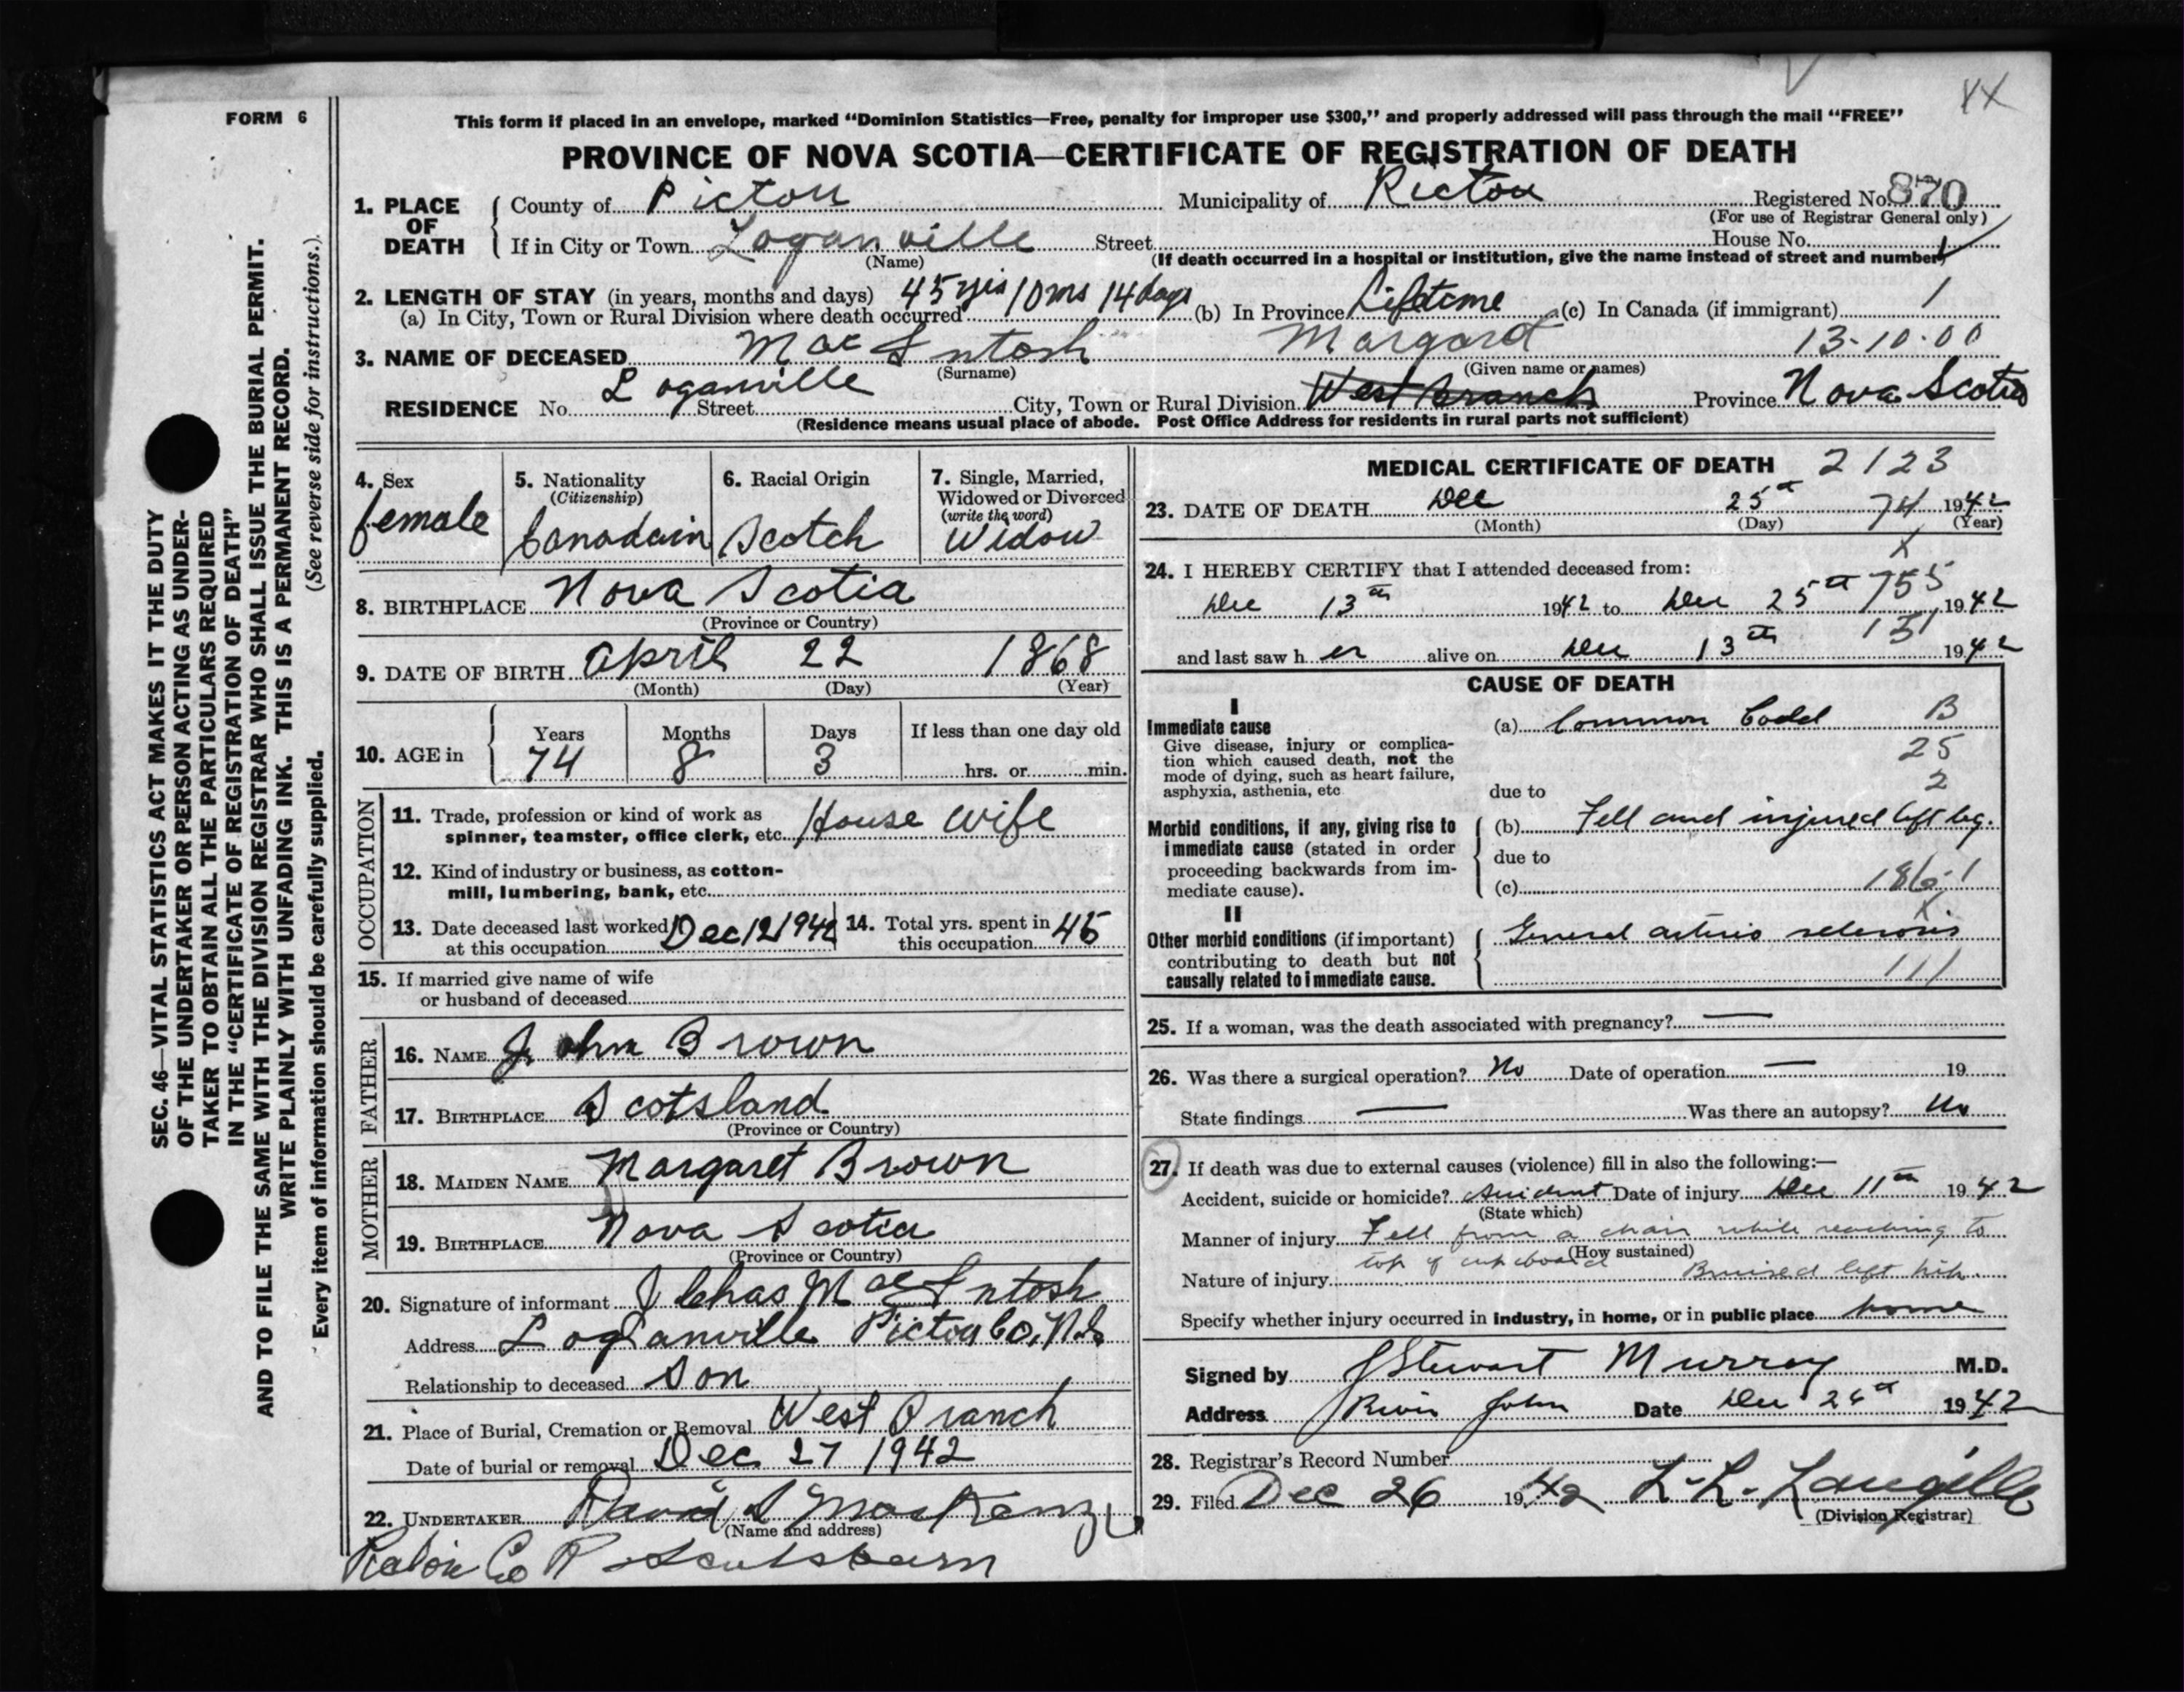 FORM 6
This form if placed in an envelope, marked “Dominion Statistics—Free, penalty for improper use $300,” and properly addressed will pass through the mail “FREE”
PROVINCE OF NOVA SCOTIA—CERTIFICATE OF REGISTRATION OF DEATH
1. PLACE OF DEATH
County of Pictou Municipality of Pictou Registered No. 870
(For use of Registrar General only)
If in City or Town Loganville Street House No.
(Name) (If death occurred in a hospital or institution, give the name instead of street and number)
2. LENGTH OF STAY (in years, months and days) 45 yrs 10 ms 14 days
(a) In City, Town or Rural Division where death occurred (b) In Province Lifetime (c) In Canada (if immigrant) 1
3. NAME OF DECEASED Mac Intosh Margard 13-10-00
(Surname) (Given name or names)
RESIDENCE No. Loganville Street City, Town or Rural Division West Branch Province Nova Scotia
(Residence means usual place of abode. Post Office Address for residents in rural parts not sufficient)
4. Sex
female
5. Nationality
(Citizenship)
Canadain
6. Racial Origin
Scotch
7. Single, Married, Widowed or Divorced
(write the word)
Widow
8. BIRTHPLACE Nova Scotia
(Province or Country)
9. DATE OF BIRTH April 22 1868
(Month) (Day) (Year)
10. AGE in
Years Months Days If less than one day old
74 8 3 hrs. or min.
OCCUPATION
11. Trade, profession or kind of work as
spinner, teamster, office clerk, etc. House wife
12. Kind of industry or business, as cotton-
mill, lumbering, bank, etc.
13. Date deceased last worked at this occupation Dec 12 1942
14. Total yrs. spent in this occupation 45
15. If married give name of wife
or husband of deceased
FATHER
16. NAME John Brown
17. BIRTHPLACE Scotsland
(Province or Country)
MOTHER
18. MAIDEN NAME Margaret Brown
19. BIRTHPLACE Nova Scotia
(Province or Country)
20. Signature of informant J Chas MacIntosh
Address Loganville Pictou Co, N.S.
Relationship to deceased Son
21. Place of Burial, Cremation or Removal West Branch
Date of burial or removal Dec 27 1942
22. UNDERTAKER David MacKenzie
(Name and address)
Co
MEDICAL CERTIFICATE OF DEATH 2123
23. DATE OF DEATH Dec 25th 74 1942
(Month) (Day) (Year)
24. I HEREBY CERTIFY that I attended deceased from:
Dec 13th 1942 to Dec 25th 1942
and last saw her alive on Dec 13th 1942
CAUSE OF DEATH
I
Immediate cause (a) Common Codd B
Give disease, injury or complica-
tion which caused death, not the
mode of dying, such as heart failure,
asphyxia, asthenia, etc
25
2
due to
Morbid conditions, if any, giving rise to (b) Fell and injured left leg.
immediate cause (stated in order
proceeding backwards from im-
mediate cause).
due to
(c)
II
Other morbid conditions (if important) General arterio sclerosis
contributing to death but not
causally related to immediate cause.
25. If a woman, was the death associated with pregnancy? —
26. Was there a surgical operation? No Date of operation — 19
State findings — Was there an autopsy? No
27. If death was due to external causes (violence) fill in also the following:—
Accident, suicide or homicide? Accident Date of injury Dec 11th 1942
(State which)
Manner of injury Fell from a chair while reaching to
(How sustained)
top of cupboard
Nature of injury Bruised left hip.
Specify whether injury occurred in industry, in home, or in public place home
Signed by J Stewart Murray M.D.
Address River John Date Dec 26th 1942
28. Registrar's Record Number
29. Filed Dec 26 1942 L. L. Langille
(Division Registrar)
SEC. 46—VITAL STATISTICS ACT MAKES IT THE DUTY
OF THE UNDERTAKER OR PERSON ACTING AS UNDER-
TAKER TO OBTAIN ALL THE PARTICULARS REQUIRED
IN THE “CERTIFICATE OF REGISTRATION OF DEATH”
AND TO FILE THE SAME WITH THE DIVISION REGISTRAR WHO SHALL ISSUE THE BURIAL PERMIT.
WRITE PLAINLY WITH UNFADING INK. THIS IS A PERMANENT RECORD.
Every item of information should be carefully supplied. (See reverse side for instructions.)